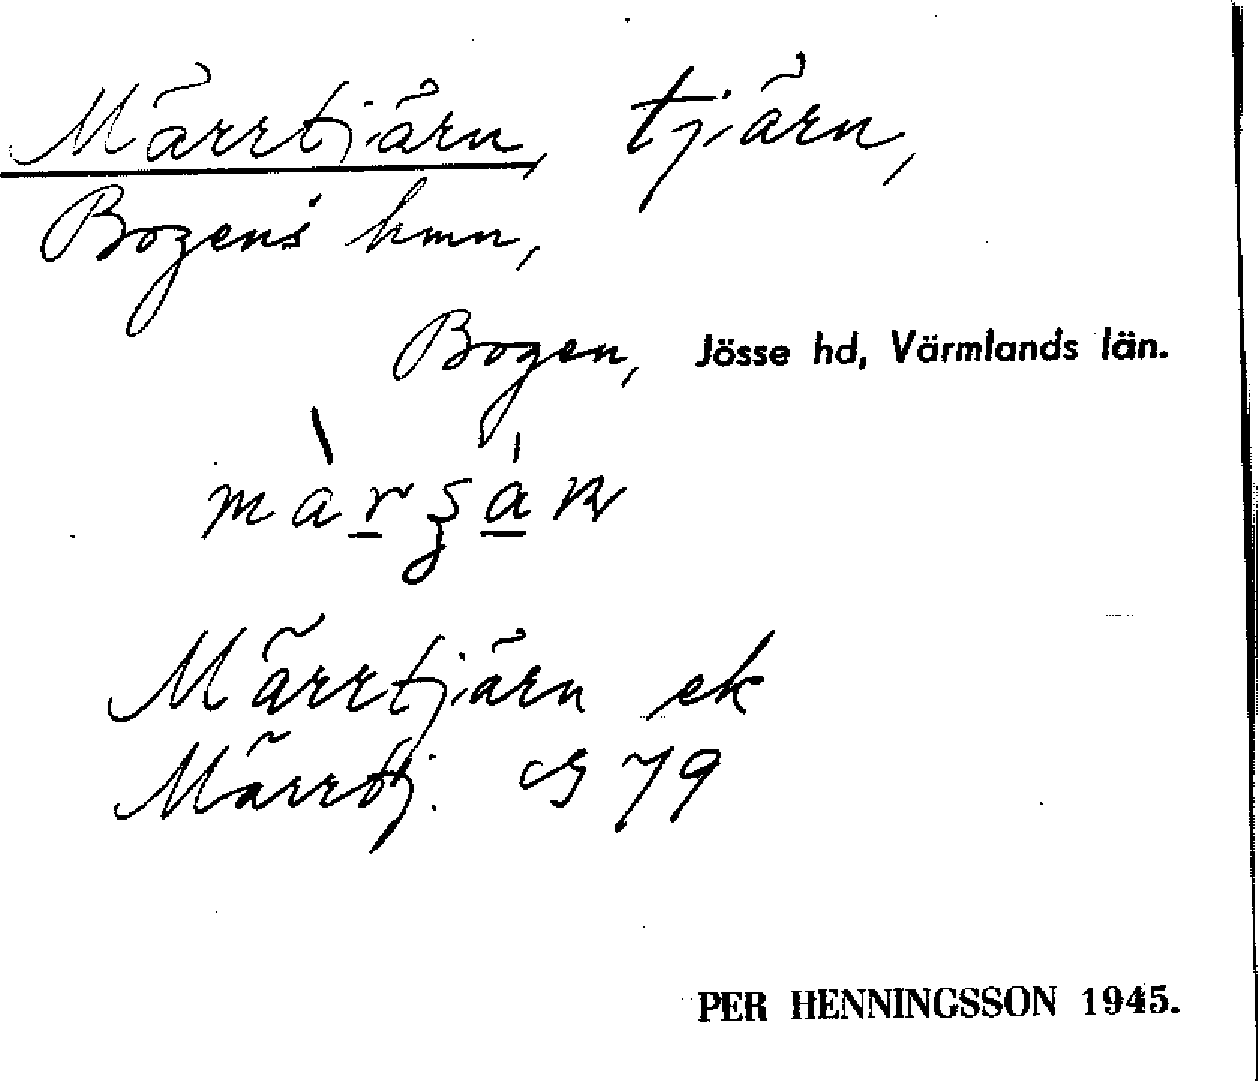 Märrtjärn, tjärn,
Bogens hmn,
Bogen, Jösse hd, Värmlands län.
Märrtjärn ek
Märrtj. G 79
PER HENNINGSSON 1945.